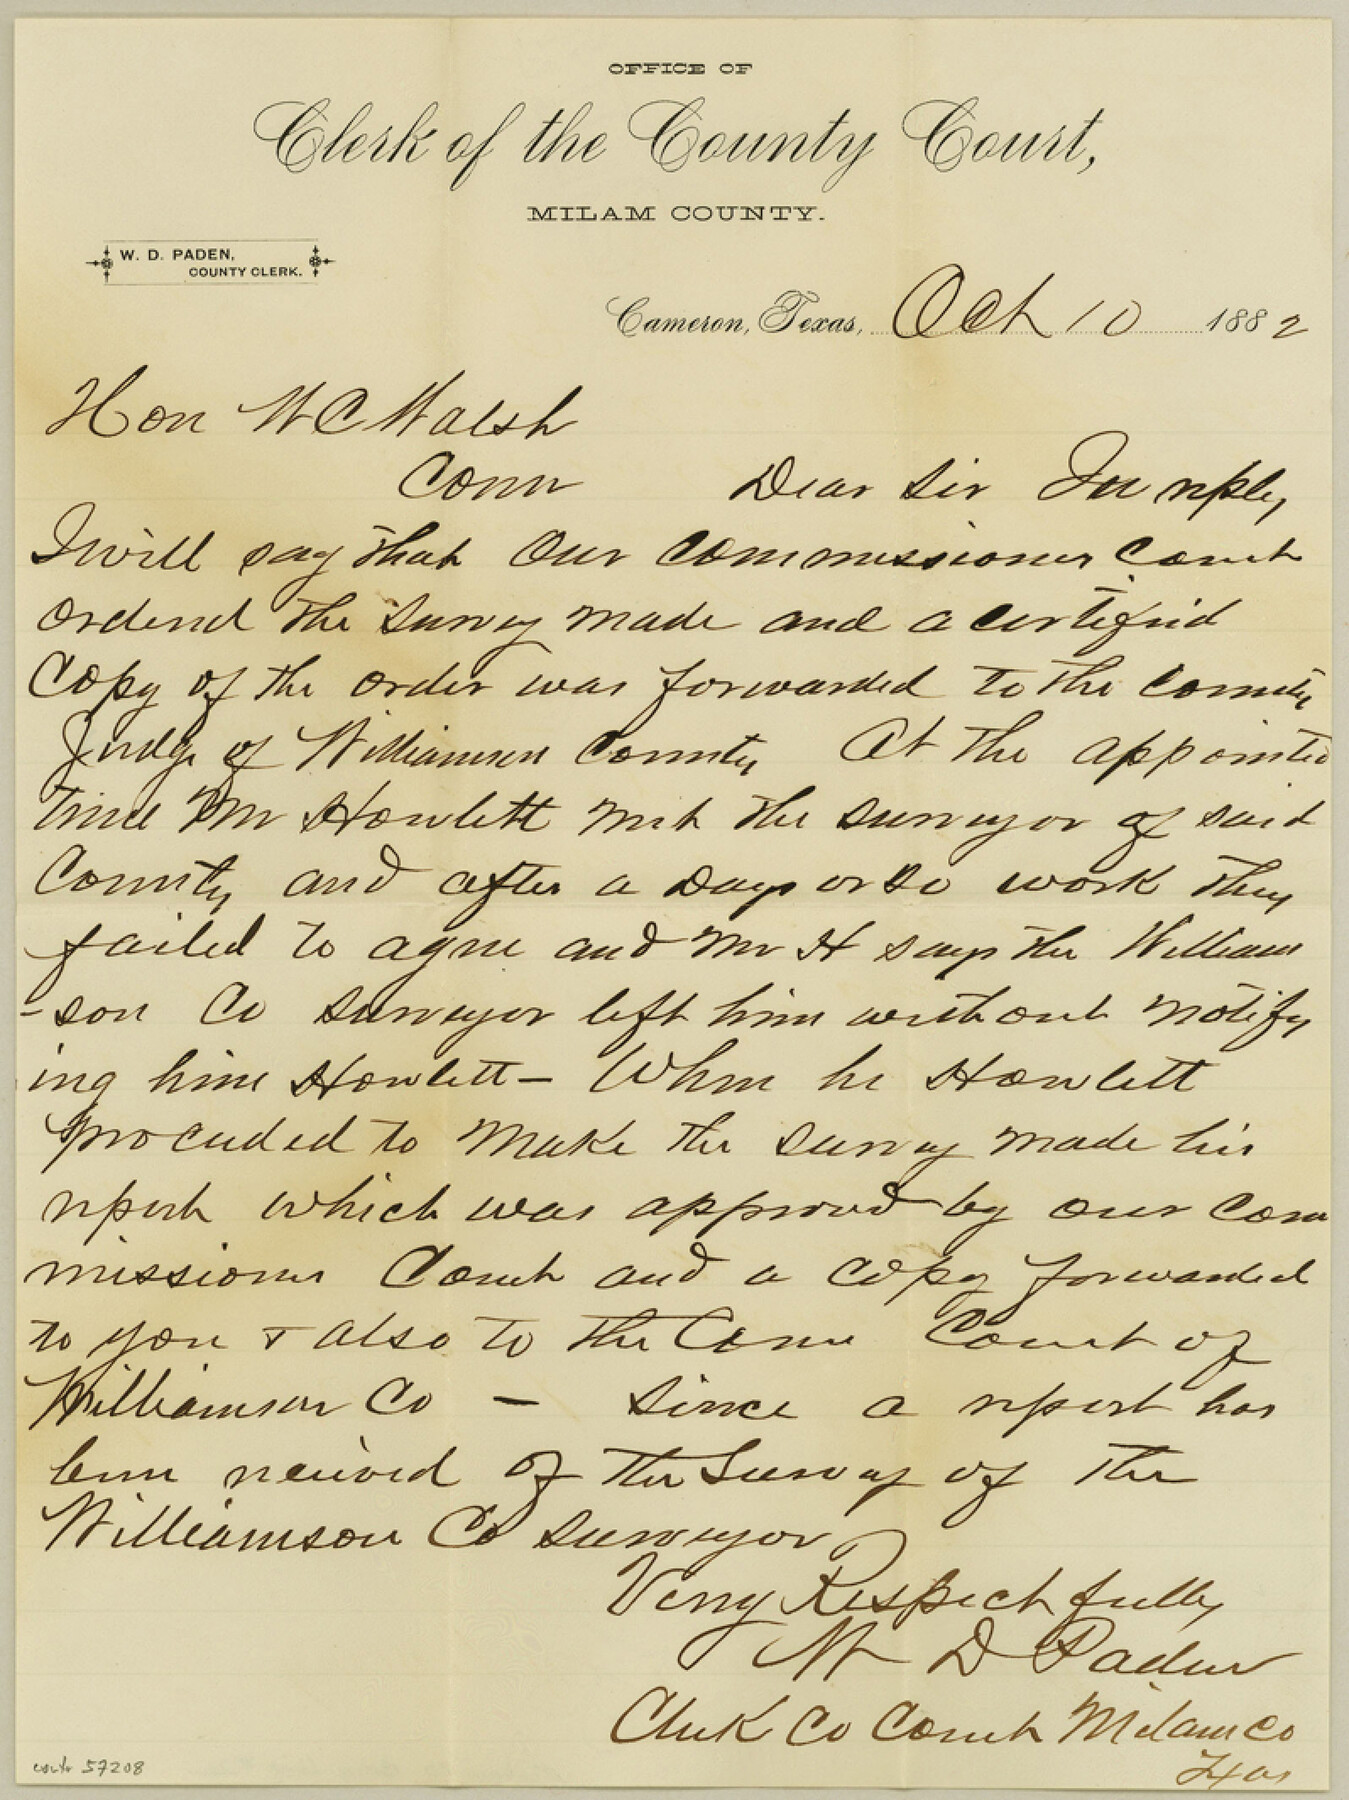 OFFICE OF
Clerk of the County Court,
MILAM COUNTY.
W. D. PADEN,
COUNTY CLERK.
Cameron, Texas, Oct 10 1882
Hon W C Walsh
Comr Dear Sir In reply,
I will say that our commissioners Court
ordered the survey made and a certified
Copy of the order was forwarded to the County
Judge of Williamson County At the appointed
time Mr Howlett met the surveyor of said
County and after a days or so work they
failed to agree and Mr H says the William
-son Co surveyor left him without notify
ing him Howlett — When he Howlett
proceeded to make the survey made his
report which was approved by our com
missioners Court and a copy forwarded
to you & also to the Com Court of
Williamson Co — Since a report has
been received of the Survey of the
Williamson Co surveyor
Verry Respectfully
W D Paden
Clerk Co Court Milam Co
Texas
contr 57208